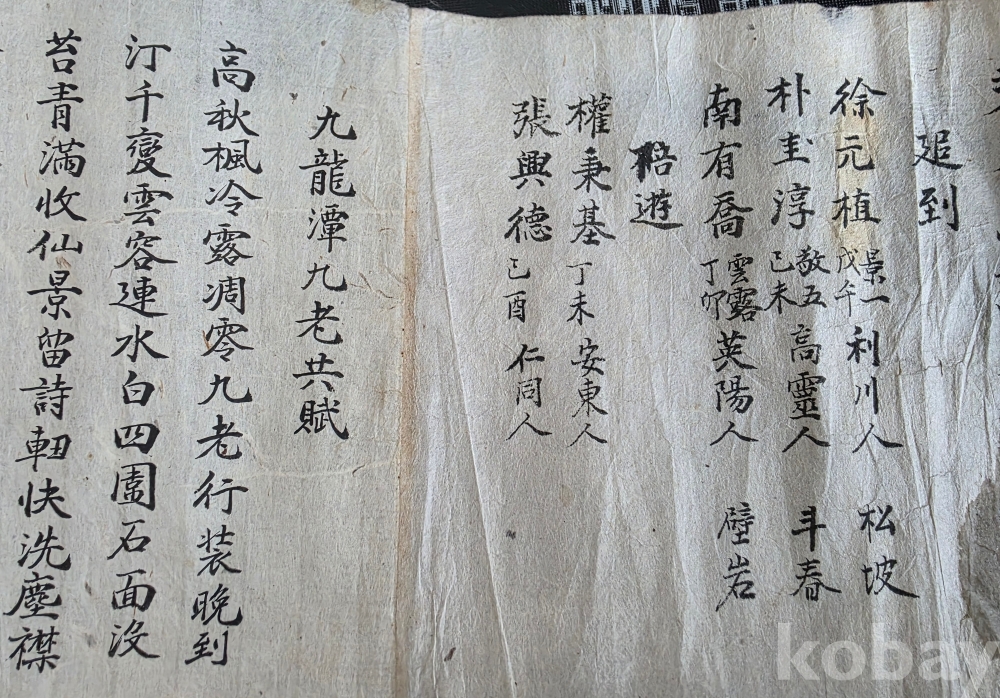 追到
徐元植 景一 戊午 利川人 松坡
朴圭淳 敬五 己未 高靈人 斗春
南有喬 雲露 丁卯 英陽人 壁岩
陪遊
權秉基 丁未 安東人
張興德 己酉 仁同人
九龍潭九老共賦
高秋楓冷露凋零九老行装晩到
汀千變雲容連水白四圍石面沒
苔青滿收仙景留詩軸快洗塵襟
kobay